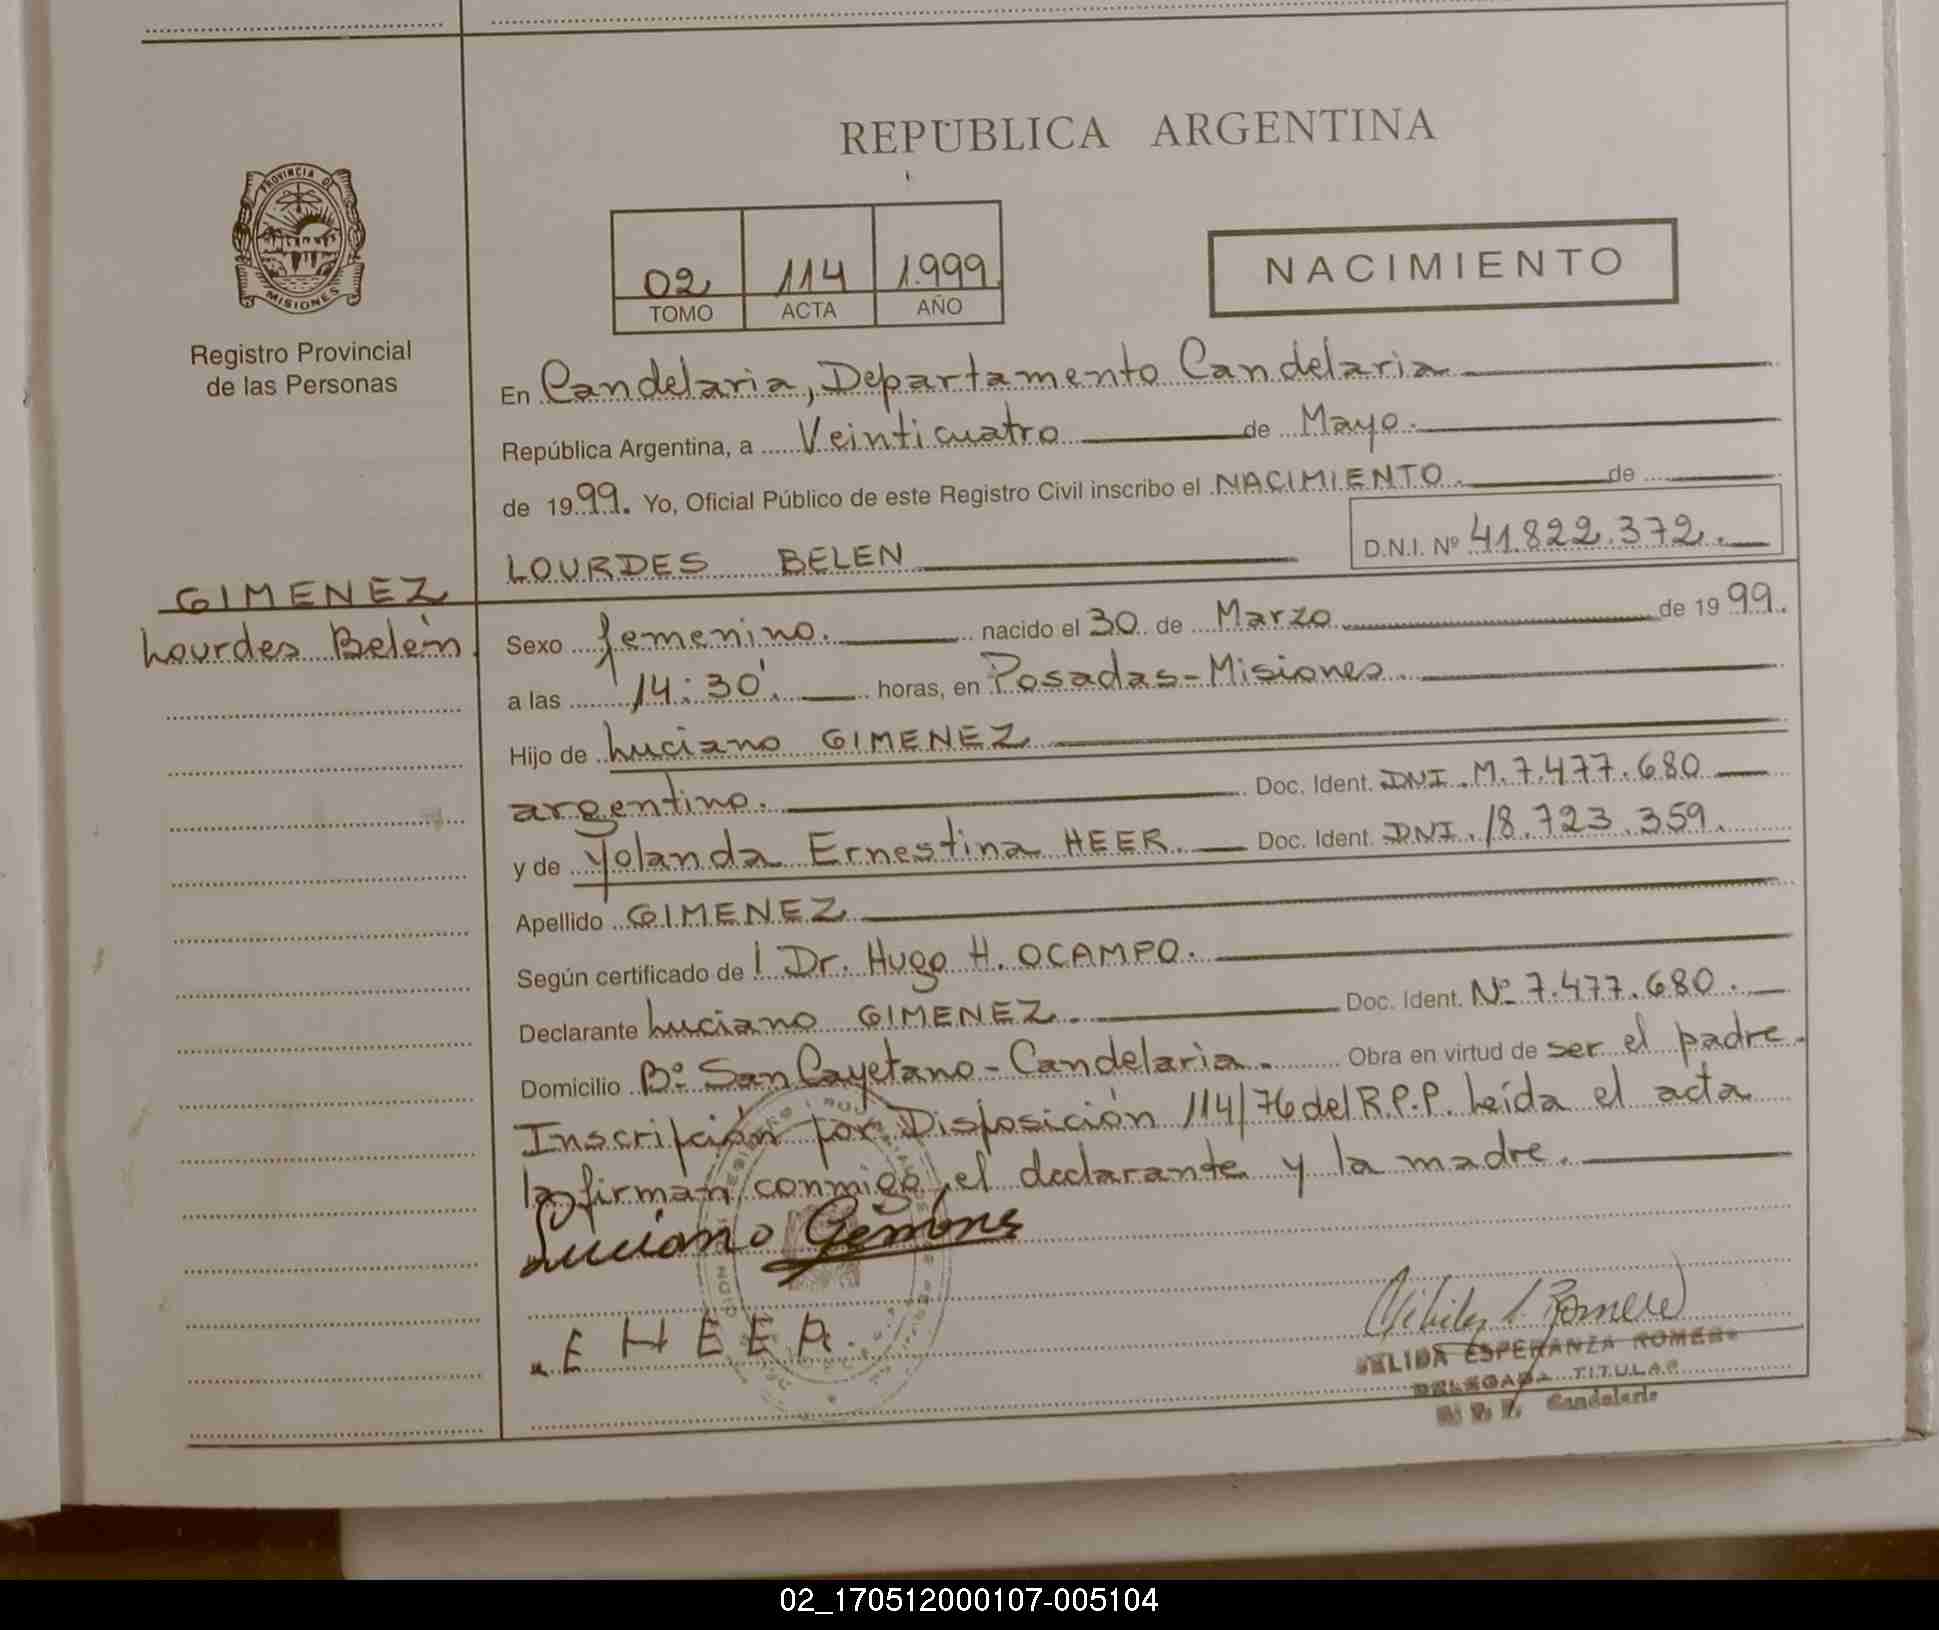 REPUBLICA ARGENTINA
PROVINCIA DE
MISIONES
Registro Provincial
de las Personas
02 114 1.999
TOMO ACTA AÑO
NACIMIENTO
En Candelaria, Departamento Candelaria
República Argentina, a Veinticuatro de Mayo.
de 1999. Yo, Oficial Público de este Registro Civil inscribo el NACIMIENTO. de
LOURDES BELEN D.N.I. Nº 41.822.372.
GIMENEZ
Lourdes Belén.
Sexo femenino. nacido el 30 de Marzo de 1999.
a las 14:30'. horas, en Posadas-Misiones.
Hijo de Luciano GIMENEZ
argentino. Doc. Ident. DNI. M.7.477.680
y de Yolanda Ernestina HEER. Doc. Ident. DNI. 18.723.359.
Apellido GIMENEZ
Según certificado de l Dr. Hugo H. OCAMPO.
Declarante Luciano GIMENEZ. Doc. Ident. Nº 7.477.680.
Domicilio Bº San Cayetano-Candelaria. Obra en virtud de ser el padre.
Inscripción por Disposición 114/76 del R.P.P. Leída el acta
la firman conmigo, el declarante y la madre.
Luciano
E HEER.
ESPERANZA ROMERO
DELEGADA TITULAR
Candelaria
02_170512000107-005104